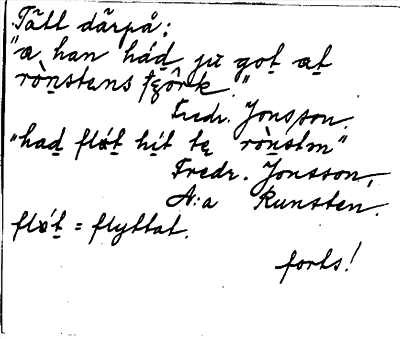 Tätt därpå:
"a han had ju got at
rònstens tçôrk."
Fredr. Jonsson.
"had fløt hit te rònstn"
Fredr. Jonsson,
N:a Runsten.
fløt = flyttat.
forts!